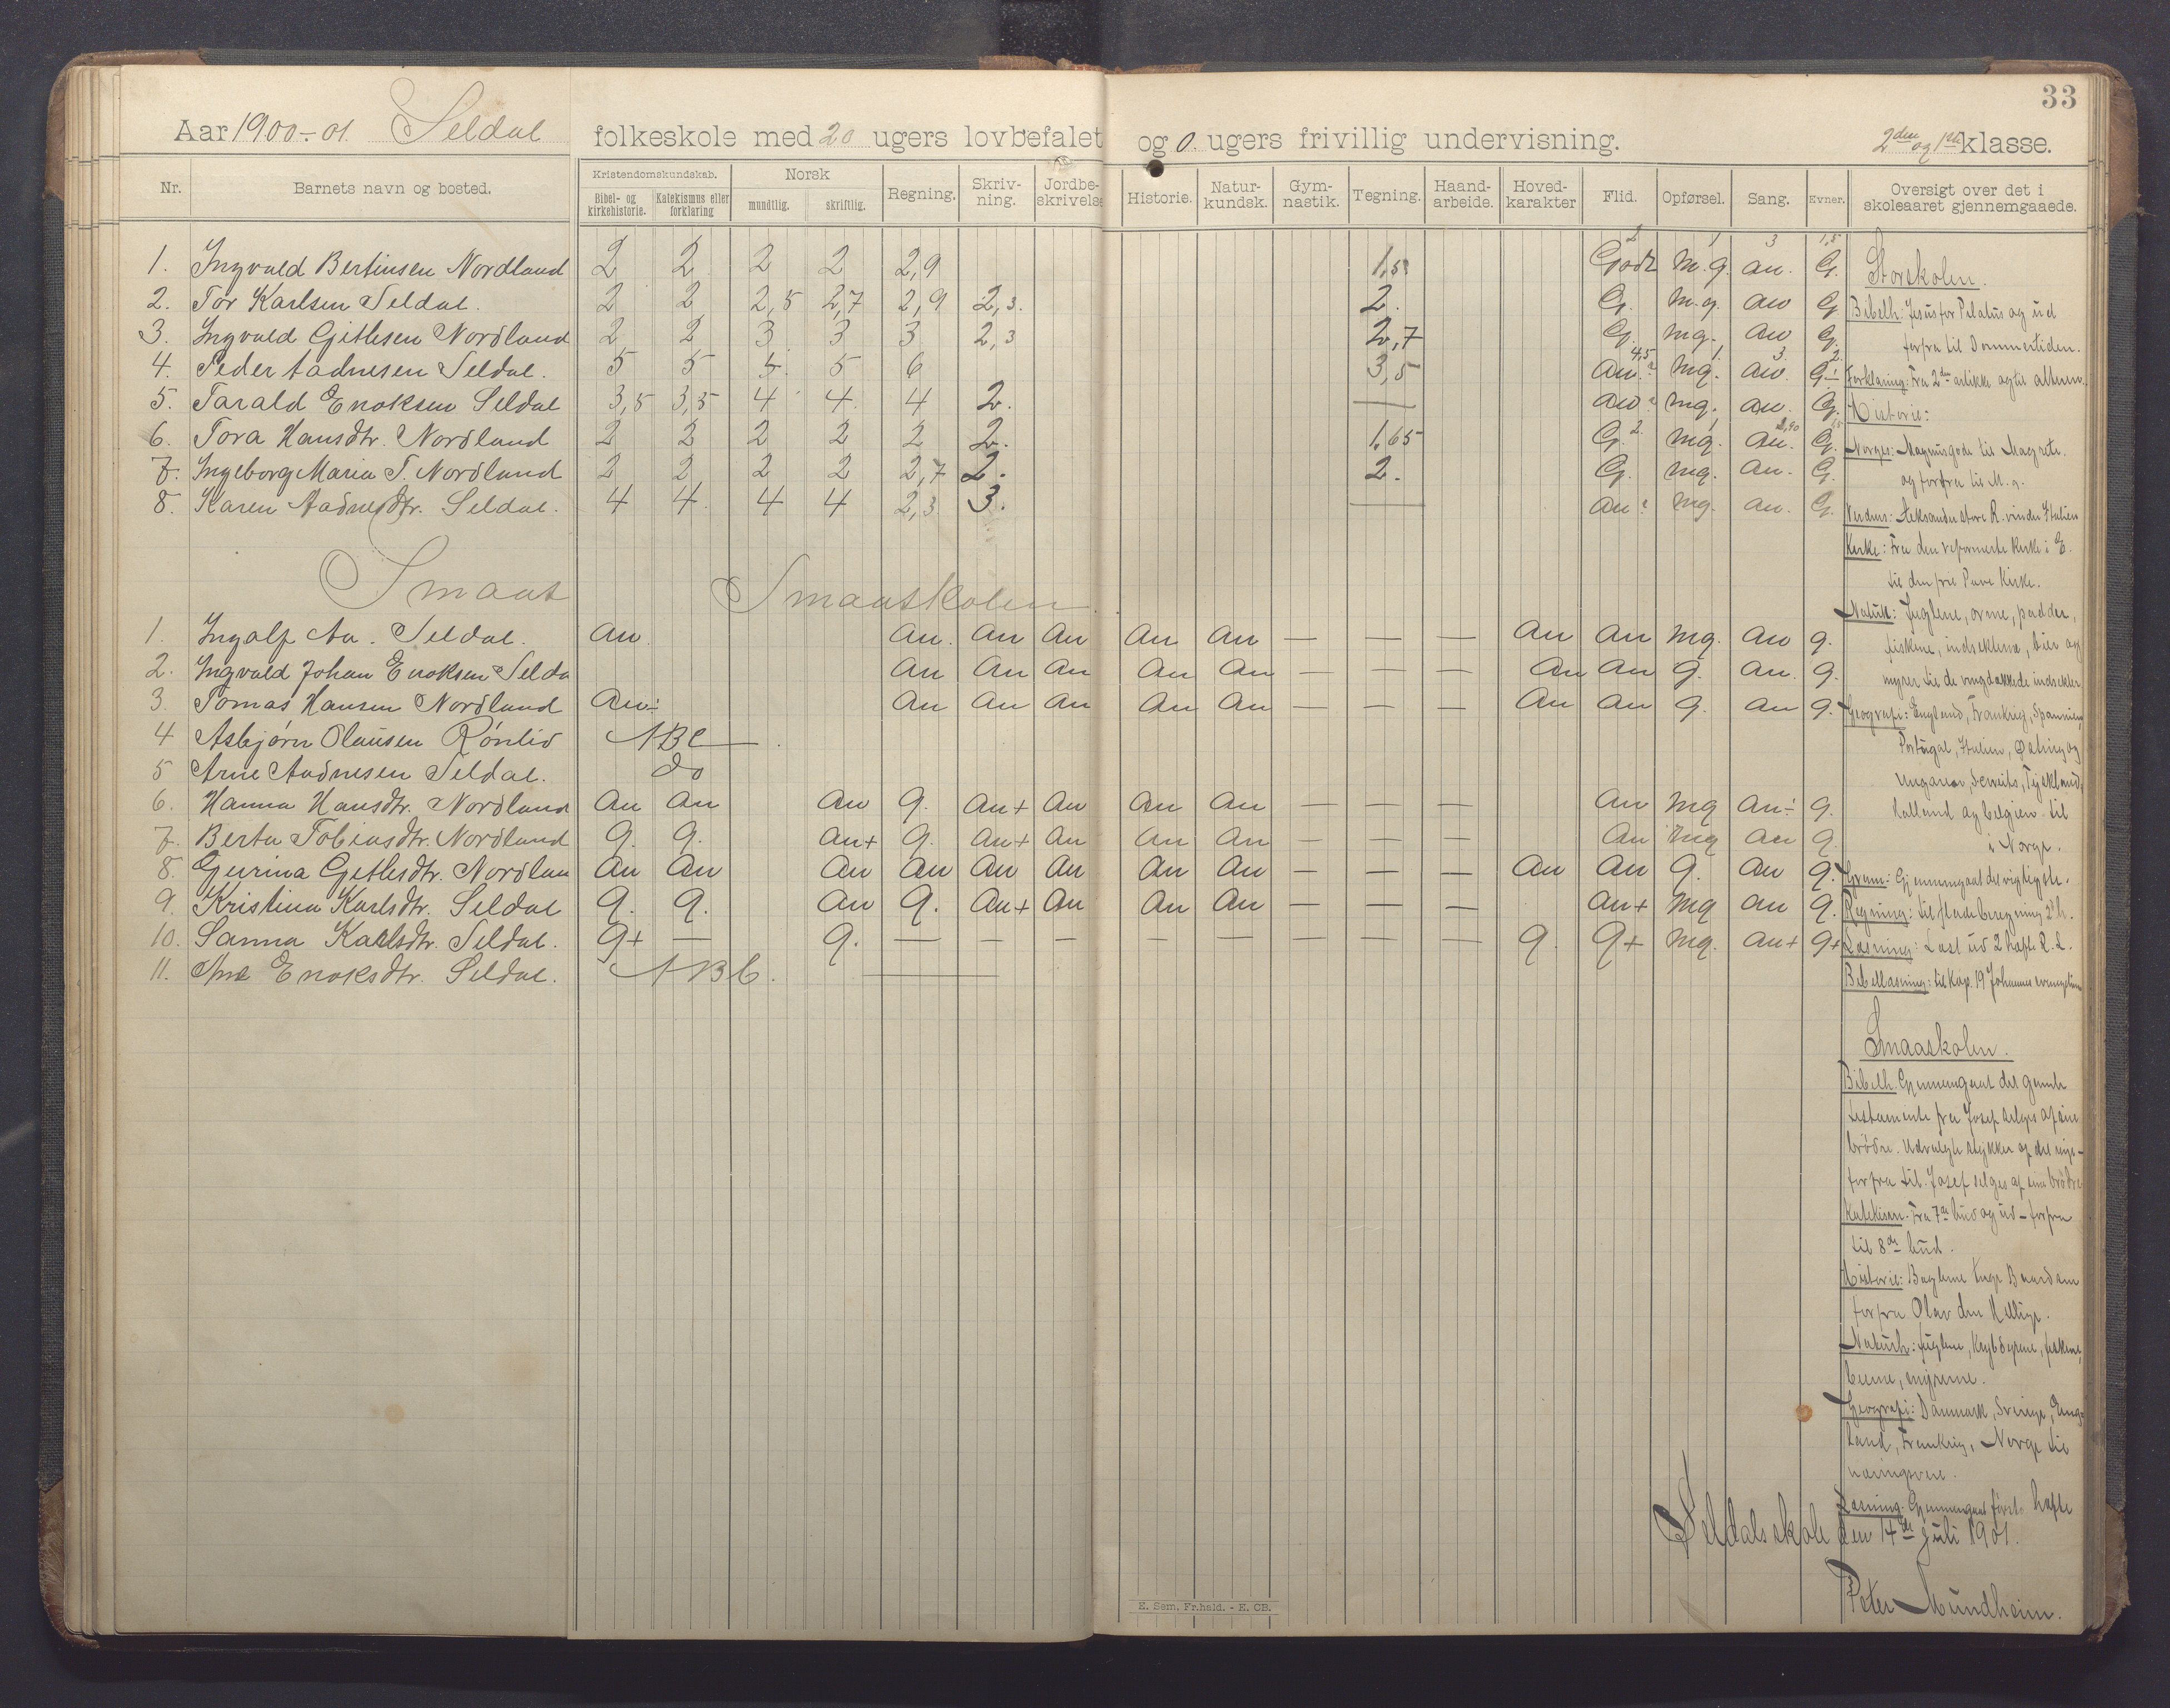 33
Aar 1900-01. Seldal folkeskole med 20 ugers lovbefalet og 0 ugers frivillig undervisning. 2den og 1ste klasse.
Nr. Barnets navn og bosted. Kristendomskundskab. Bibel- og kirkehistorie. Katekismus eller forklaring Norsk mundtlig. skriftlig. Regning. Skriv-ning. Jordbe-skrivelse Historie. Natur-kundsk. Gym-nastik. Tegning. Haand-arbeide. Hoved-karakter Flid. Opførsel. Sang. Evner. Oversigt over det i skoleaaret gjennemgaaede.
1. Ingvald Bertinsen Nordland 2 2 2 2 2,9 1,5 Godt m.g. an. G.
2. Tor Karlsen Seldal. 2 2 2,5 2,7 2,9 2,3. 2. G. m.g. an G
3. Ingvald Gitlesen Nordland 2 2 3 3 3 2,3 2,7 G. mg. an G.
4. Peder Aadnesen Seldal. 5 5 5. 5 6 3,5 an. mg. an. G
5. Tarald Enoksen Seldal 3,5 3,5 4 4 4 2. — an mg. an. G.
6. Tora Hansdtr. Nordland 2 2 2 2 2 2. 1,65 G. mg. an. G.
7. Ingeborg Maria T. Nordland 2 2 2 2 2,7 2. 2. G. mg. an. G.
8. Karen Aadnesdtr. Seldal. 4 4 4 4 2,3 3. — an mg. an. G.
Smaas Smaaskolen
1. Ingolf Aa. Seldal. an. an. an an an an — — — an an mg. an g.
2. Ingvald Johan Enoksen Selda an an an an an — — — an an g. an. g.
3. Tomas Hansen Nordland an÷ an an an an an — — — an an g. an g.
4 Asbjørn Olausen Rónlid ABC
5 Arne Aadnesen Seldal. do
6. Hanna Hansdtr. Nordland an an an g. an+ an an an — — — an mg an÷ g.
7. Berta Tobiasdtr. Nordland g. g. an+ g. an+ an an an — — — an mg an g
8. Gurina Gitlesdtr. Nordlan an an an an an an an an — — — an an g. an g.
9. Kristina Karlsdtr. Seldal g. g. an g. an+ an an an — — — an+ mg an g.
10. Sanna Karlsdtr. Seldal. g+ — g. — — — — — — — — g. g+ mg. an+ g+
11. Ane Enoksdtr. Seldal. ABC.
Storskolen.
Bibelh: Jesus for Pilatus og ud
forfra til Dommertiden.
Forklaring: Fra 2den artikke og til
Historie:
Norges: Magnus gode til Magrete.
og forfra til M. g.
Verdens: Aleksander store R. vinder Italien
Kirke: Fra den reformerte Kirke i E.
til den frie Kirke.
Naturk: Fuglene, orme, padder,
fiskene, insekterne, bier og
myrer til de vingdækkede insekter
Geografi: England, Frankrig, Spanien,
Portugal, Italien, Østrig og
Ungaren, Schweits, Tyskland,
Holland og belgien til
i Norge.
Gram: Gjennemgaat det vigtigste.
Regning: til fladeberegning 2 h.
Læsning: Læst ud 2 hefte R. L.
Bibellæsning: til Kap. 19 Johannes evangelium
Smaaskolen.
Bibelh. Gjennemgaat det gamle
testamente fra Josef selges af sine
brødre. Udvalgte stykker af det nye -
forfra til Josef selges af sine brødre
Katekism. Fra 7de bud og ud - forfra
til 8de bud.
Historie: Baglerne Inge Baardsøn
forfra Olav den Hellige.
Naturh: fuglene, Krybdyrene, fiskene,
bierne, myrerne.
Geografi: Danmark, Sverige, Eng-
land, Frankrig, Norge til
næringsveie.
Læsning: Gjennemgaat først hefte
Seldals skole den 14de juli 1901.
Peter Mundheim.
E. Sem, Fr.hald. - E. CB.